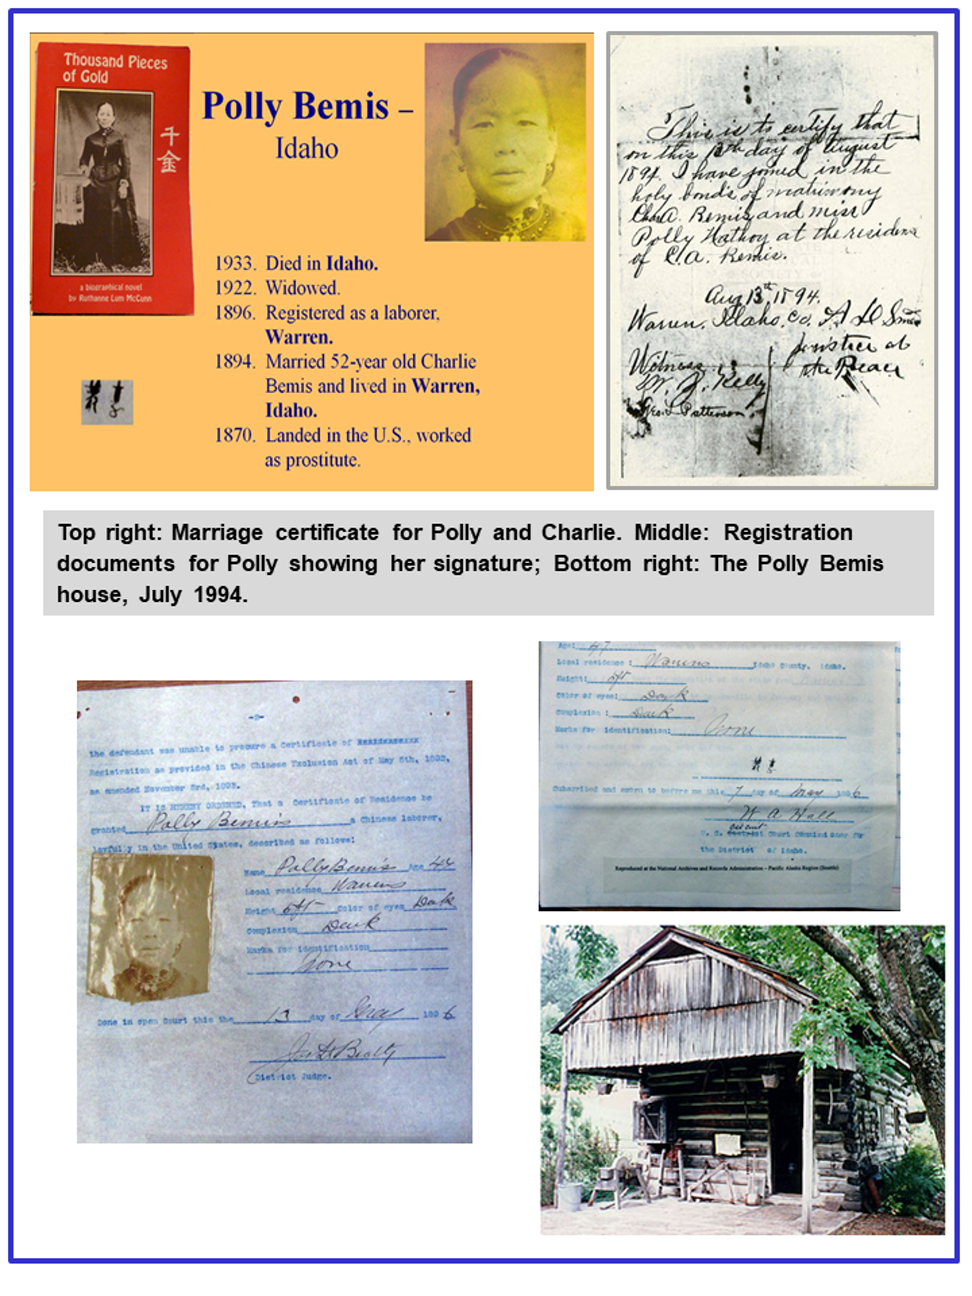 Thousand Pieces
of Gold
千
金
a biographical novel
by Ruthanne Lum McCunn
Polly Bemis –
Idaho
1933. Died in Idaho.
1922. Widowed.
1896. Registered as a laborer,
Warren.
1894. Married 52-year old Charlie
Bemis and lived in Warren,
Idaho.
1870. Landed in the U.S., worked
as prostitute.
This is to certify that
on this 13th day of August
1894. I have joined in the
holy bonds of matrimony
Chas. A. Bemis and miss
Polly Hathoy at the residence
of C. A. Bemis.
Aug 13th 1894.
Warren, Idaho, Co. A D Smead
Justice of
the Peace
Witness
Kelly
Patterson
Top right: Marriage certificate for Polly and Charlie. Middle: Registration
documents for Polly showing her signature; Bottom right: The Polly Bemis
house, July 1994.
-2-
the defendant was unable to procure a Certificate of
Registration as provided in the Chinese Exclusion Act of May 5th, 1892,
as amended November 3rd, 1893.
IT IS HEREBY ORDERED, That a Certificate of Residence be
granted Polly Bemis a Chinese laborer,
lawfully in the United States, described as follows:
Name Polly Bemis Age 47
Local residence Warrens
Height 5ft Color of eyes Dark
Complexion Dark
Marks for identification
None
Done in open Court this the 13 day of May 1896
Jas H Beatty
District Judge.
Age: 47
Local residence: Warrens Idaho County, Idaho.
Height: 5ft
Color of eyes: Dark
Complexion: Dark
Marks for identification: None
Subscribed and sworn to before me this 7 day of May 1896
W A Hall
U. S. Court Commissioner for
the District of Idaho.
Reproduced at the National Archives and Records Administration – Pacific Alaska Region (Seattle)